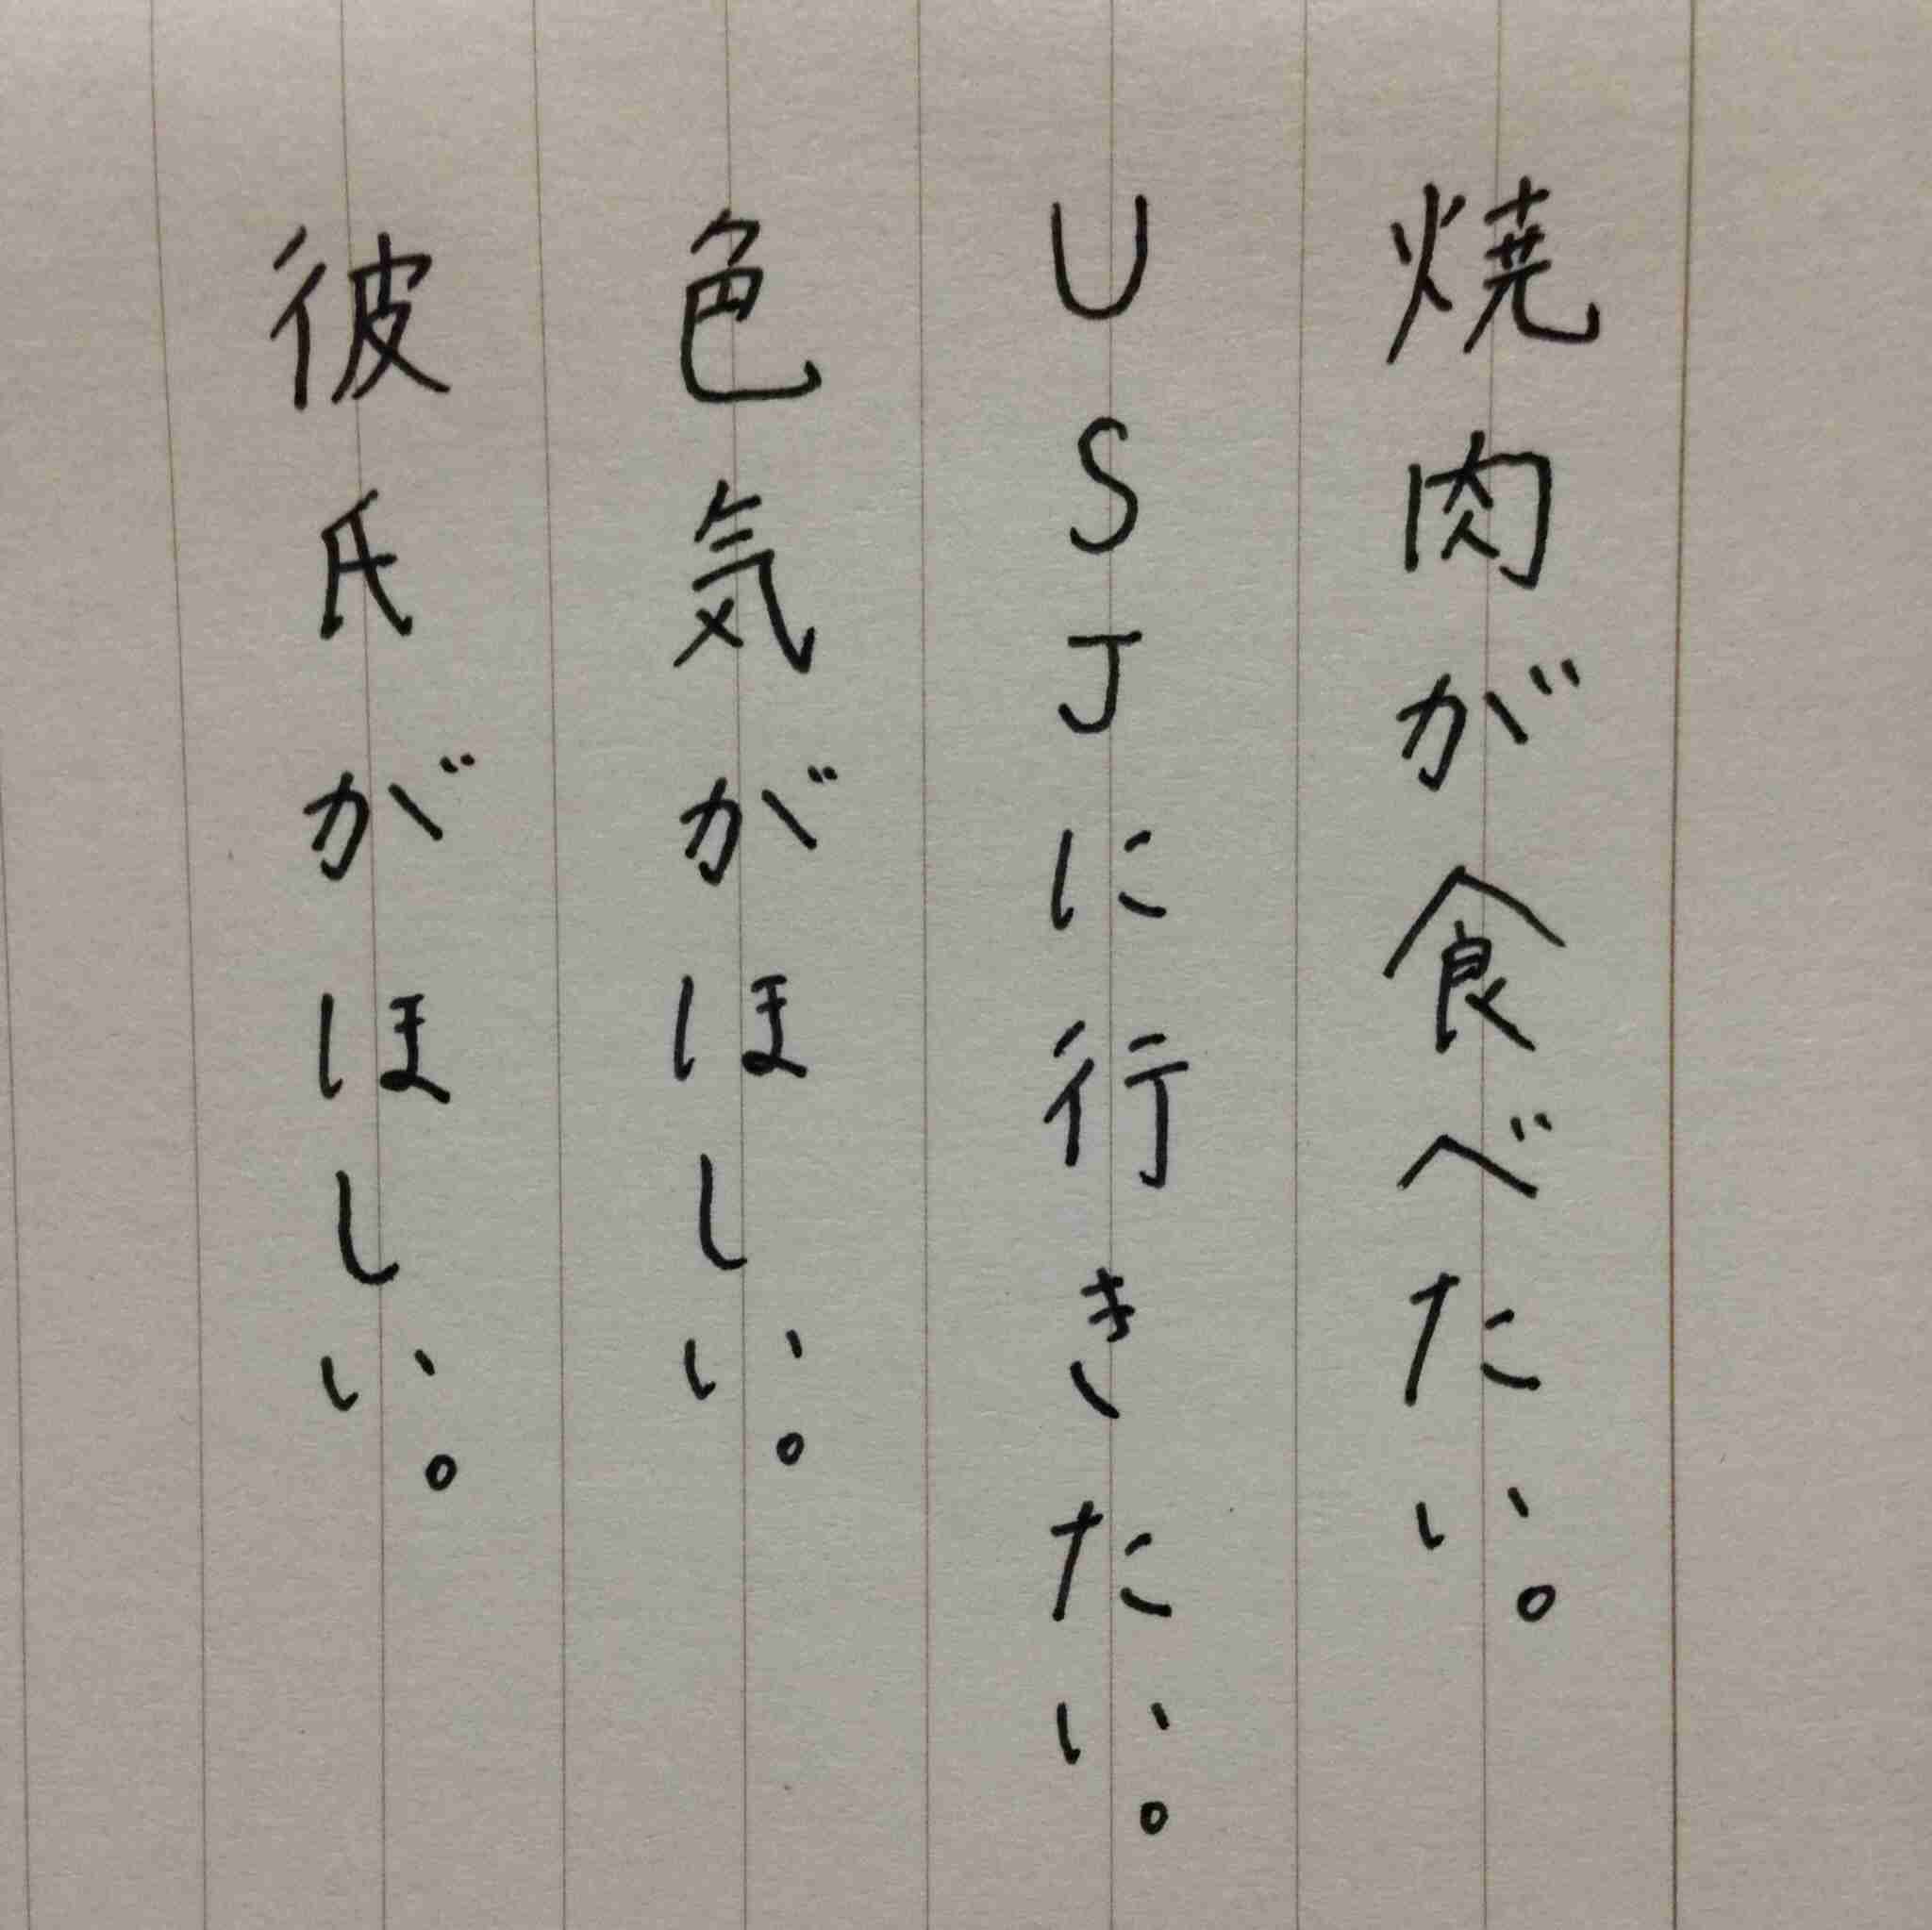 焼肉が食べたい。
USJに行きたい。
色気がほしい。
彼氏がほしい。